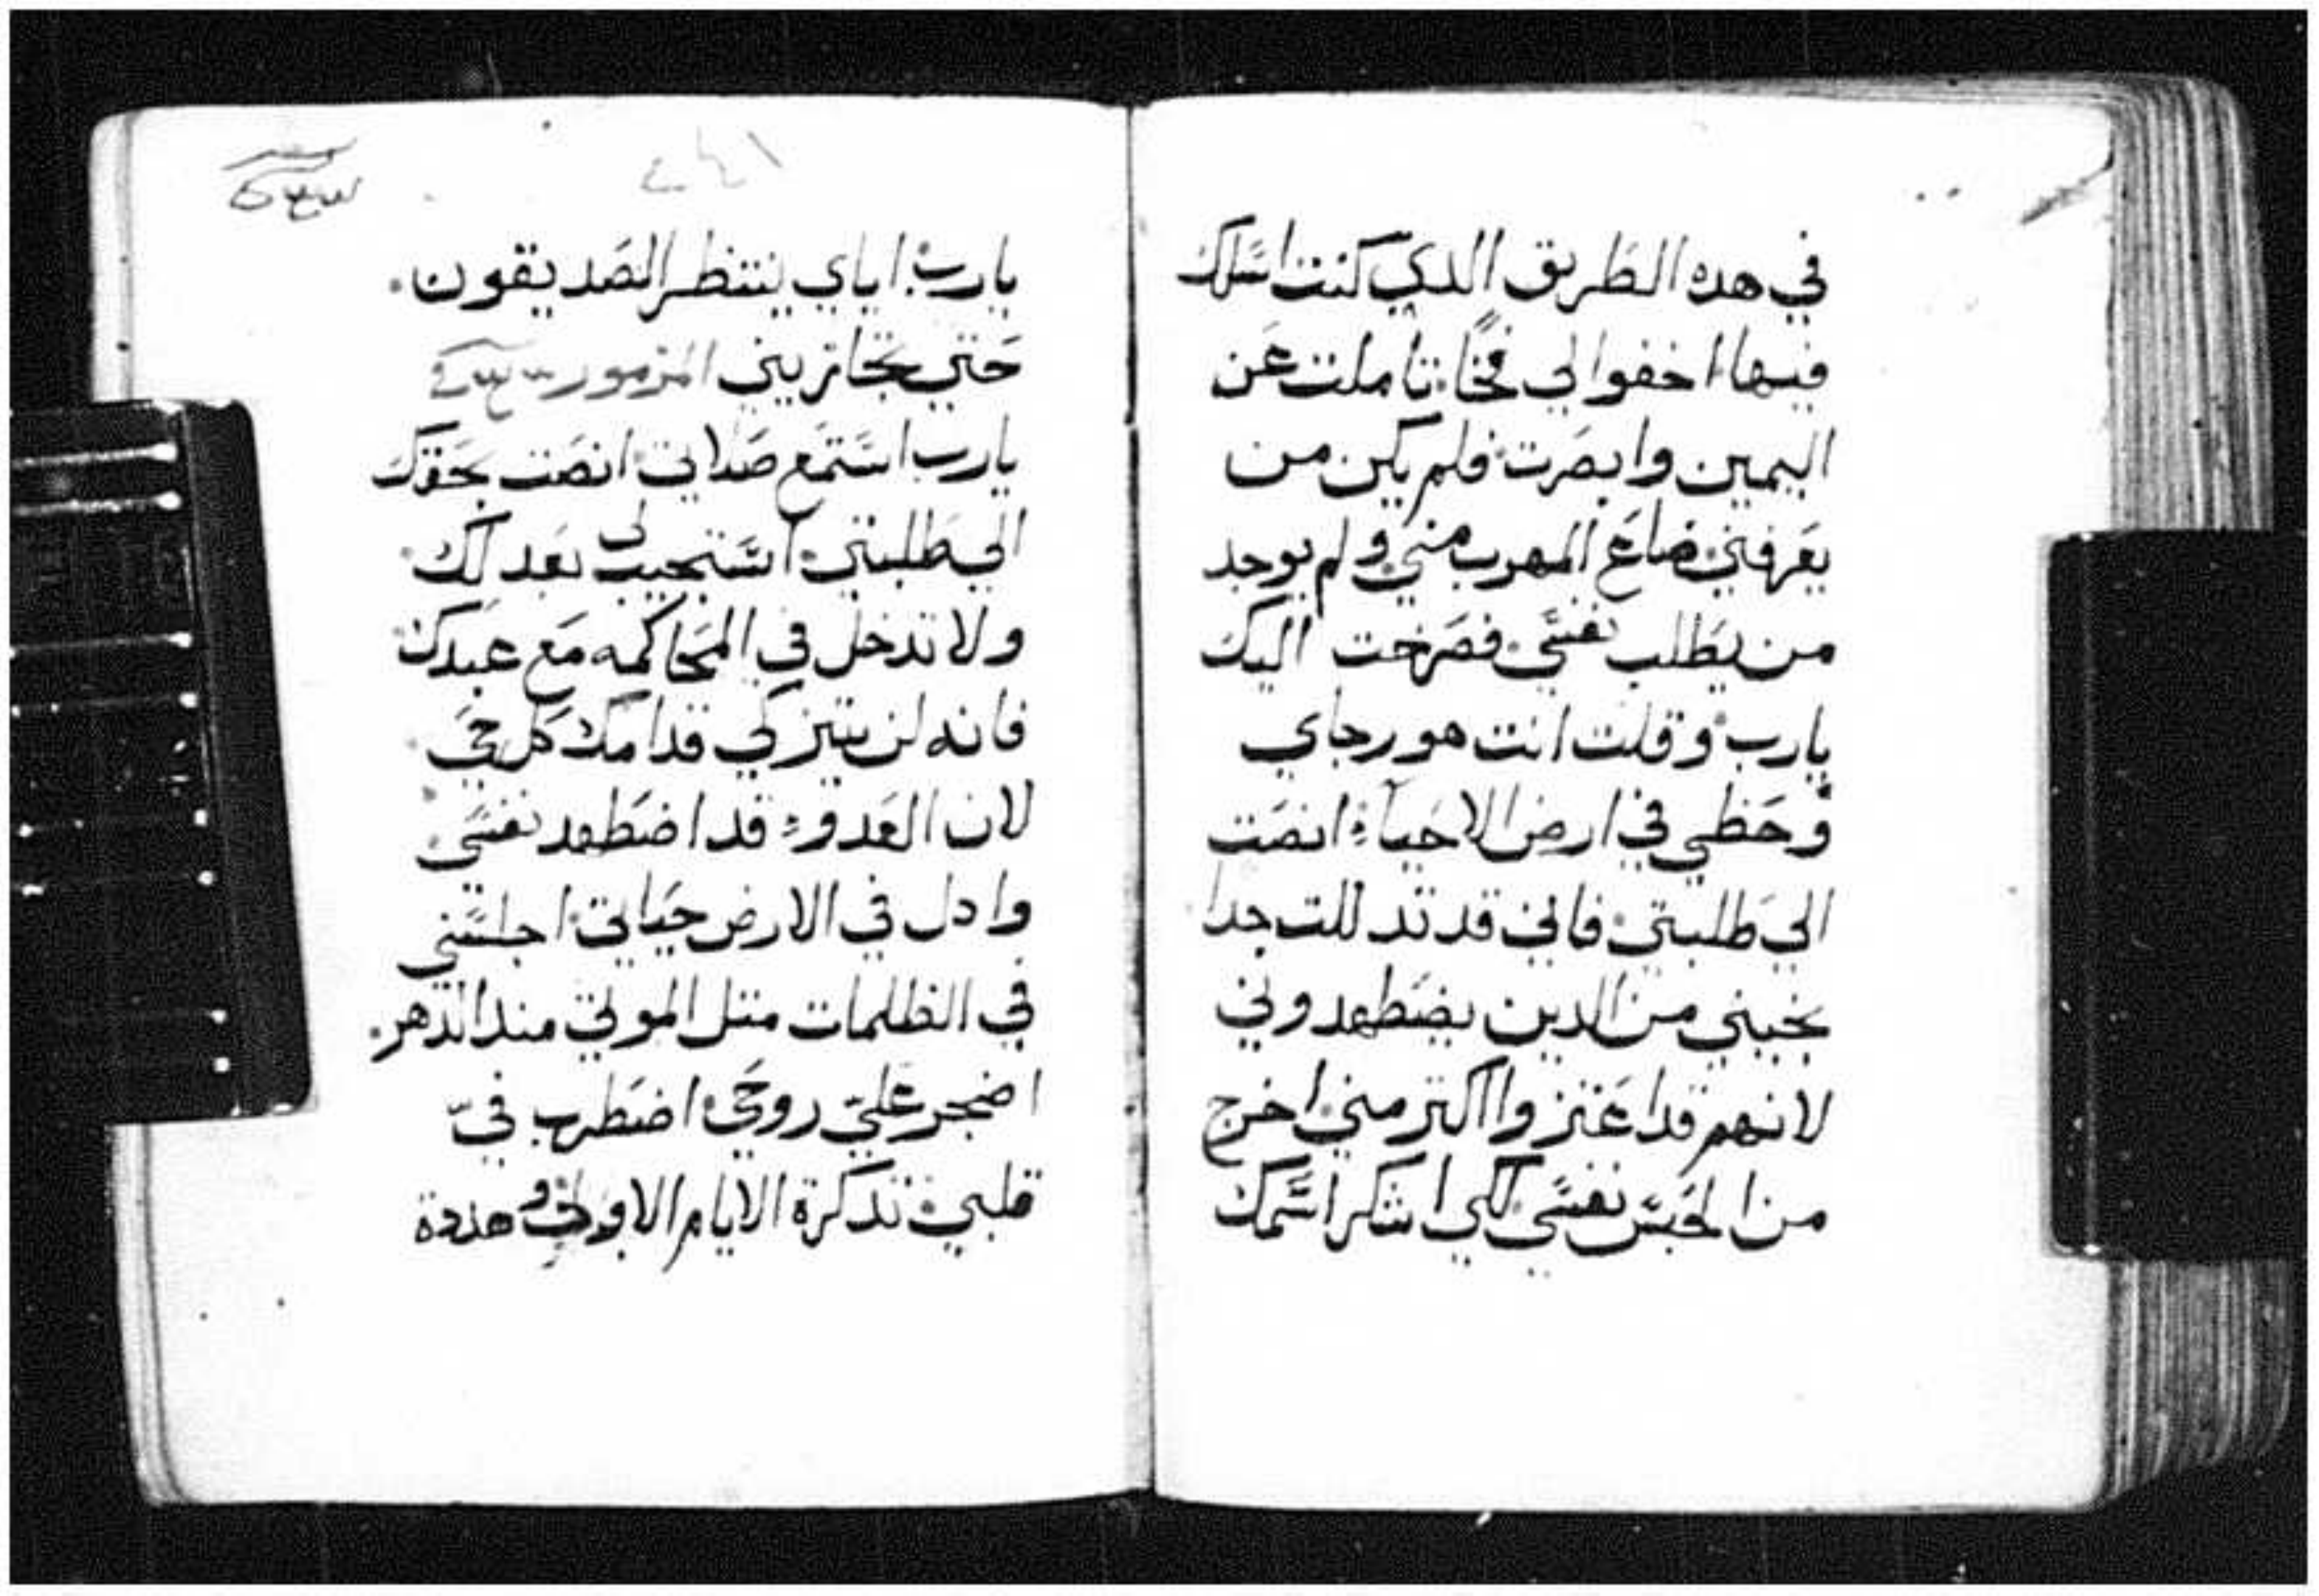 في هده الطريق الدي كنت اسلك
فيها اخفوا لي فخًا تاملت عن
اليمين وابصرت فلم يكن من
يعرفني ضاع المهرب مني ولم يوجد
من يطلب نفسي فصرخت اليك
يارب وقلت انت هو رجاي
وحظي في ارض الاحياء انصت
الي طلبتي فاني قد تدللت جدا
نجيني من الدين يضطهدوني
لانهم قد اعتزوا اكتر مني اخرج
من الحبس نفسي لكي اشكر اسمك
يارب اياي ينتظر الصديقون.
حتي تجازيني المزمور
يارب استمع صلاتي انصت بحقك
الي طلبتي استجيب لي بعدلك
ولا تدخل في المحاكمه مع عبدك
فانه لن يتزكي قدامك كل حي
لان العدو قد اضطهد نفسي
وادل في الارض حياتي اجلسني
في الظلمات متل الموتي مند الدهر.
اضجر عليّ روحي اضطرب فيّ
قلبي تدكرة الايام الاولي وهددة